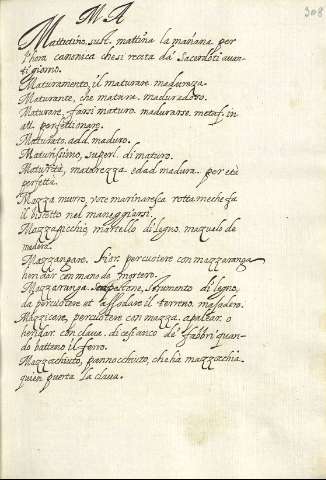 M A
308
Mattutino, sust. mattina la mañana per
l'hora canonica che si recita da' Sacerdoti avan-
ti giorno.
Maturamento, il maturare. maduranza.
Maturante, che matura. maduradoro.
Maturare, farsi maturo. madurarse. metaf. in
att. perfettionare.
Maturato. add. maduro.
Maturissimo, superl. di maturo.
Maturità, maturezza. edad madura. per età
perfetta.
Mazza murro, voce marinaresca rottame che fa
il biscotto nel maneggiarsi.
Mazzapicchio, martello di legno, mazuelo de
madera.
Mazzangare. Fior. percuotere con mazzaranga
heridar con mano de mortero.
Mazzaranga. pestone, strumento di legno,
da percuotere et assodare il terreno. masadero.
Mazzicare, percuotere con mazza. apalear. o
heridar con clava. di cesi anco de' fabbri quan-
do battono il ferro.
Mazzochiuto, pannocchiuto, che hà mazzochia.
quien puerta la clava.